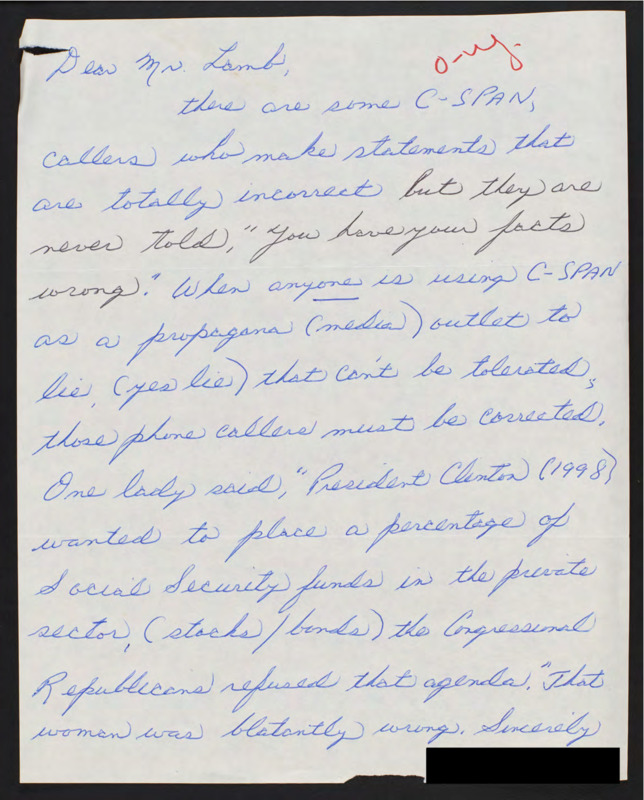 Dear Mr. Lamb,
o-ug.
there are some C-SPAN,
callers who make statements that
are totally incorrect but they are
never told, "You have your facts
wrong." When anyone is using C-SPAN
as a propagana (media) outlet to
lie, (yes lie) that can't be tolerated,
those phone callers must be corrected.
One lady said, "President Clenton (1998)
wanted to place a percentage of
Social Security funds in the private
sector, (stocks/bonds) the Congressional
Republicans refused that agenda." That
woman was blatantly wrong. Sincerily